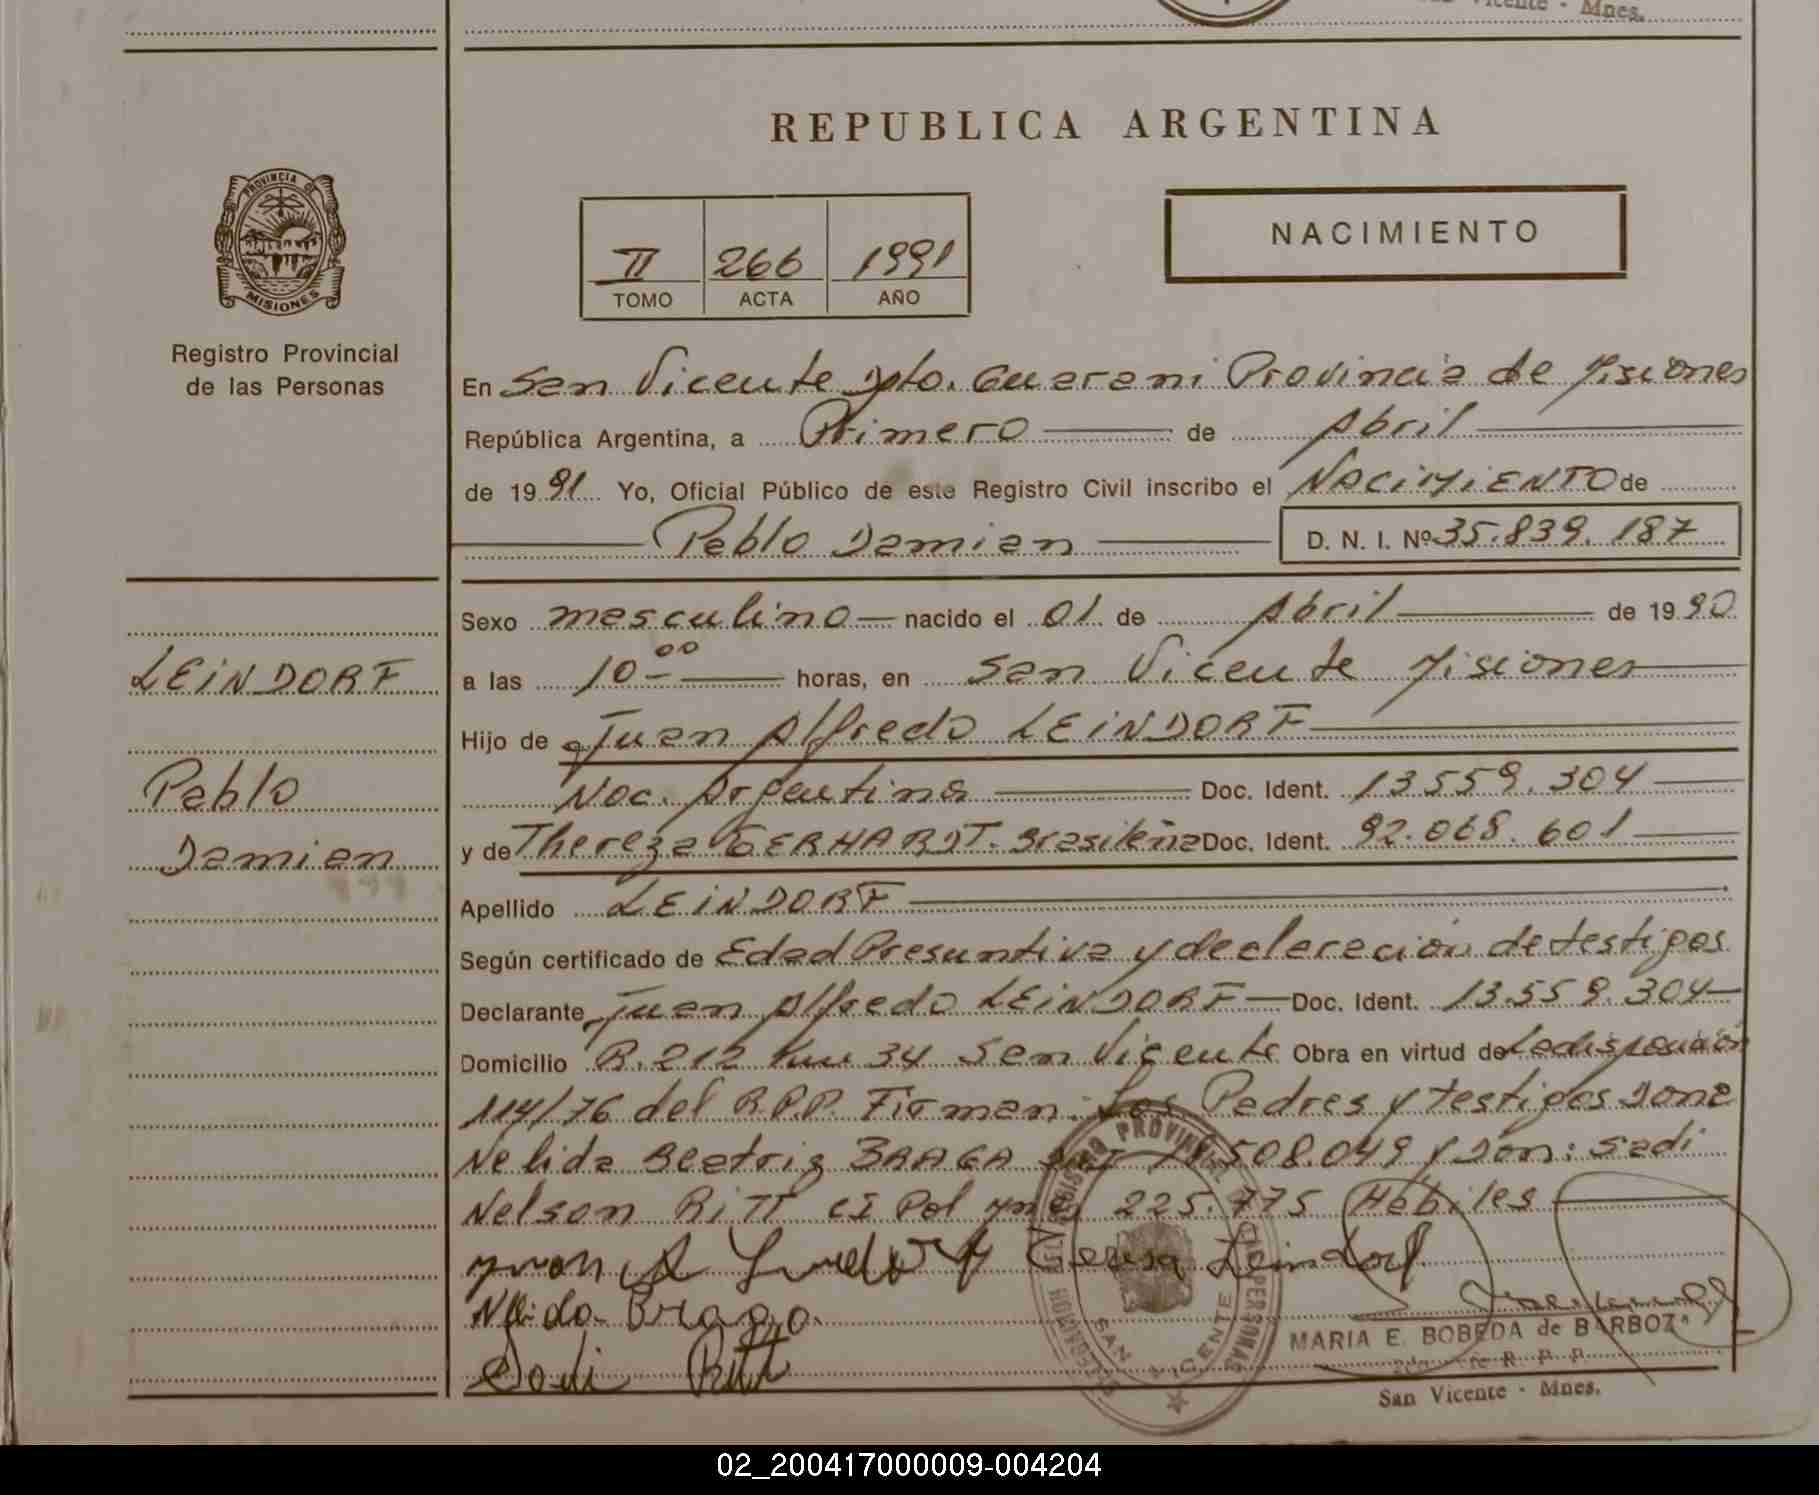 San Vicente - Mnes.
REPUBLICA ARGENTINA
PROVINCIA DE
MISIONES
Registro Provincial
de las Personas
II 266 1991
TOMO ACTA AÑO
NACIMIENTO
En San Vicente Dpto. Guarani Provincia de Misiones
República Argentina, a Primero de Abril
de 1991 Yo, Oficial Público de este Registro Civil inscribo el NACIMIENTO de
Pablo Damian D. N. I. Nº 35.839.187
LEINDORF
Pablo
Damian
Sexo masculino nacido el 01 de Abril de 1990
a las 10-00 horas, en San Vicente Misiones
Hijo de Juan Alfredo LEINDORF
Nac. Argentina Doc. Ident. 13559.304
y de Thereza GERHARDT. Brasileña Doc. Ident. 92.068.601
Apellido LEINDORF
Según certificado de Edad Presuntiva y declaración de testigos
Declarante Juan Alfredo LEINDORF Doc. Ident. 13.559.304
Domicilio R.212 Km 34 San Vicente Obra en virtud de La disposición
114/76 del R.P.P. Firman: Los Padres y testigos Doña
Nelida Beatriz BRAGA 508.049 y Don: Sadi
Nelson RITT CI Pol Mnes 225.775 Habiles
Teresa Leindorf
Nelida Braga
Sadi Ritt
REGISTRO PROVINCIAL DE LAS PERSONAS
SAN VICENTE
MARIA E. BOBEDA de BARBOZA
R. P. P.
San Vicente - Mnes.
02_200417000009-004204